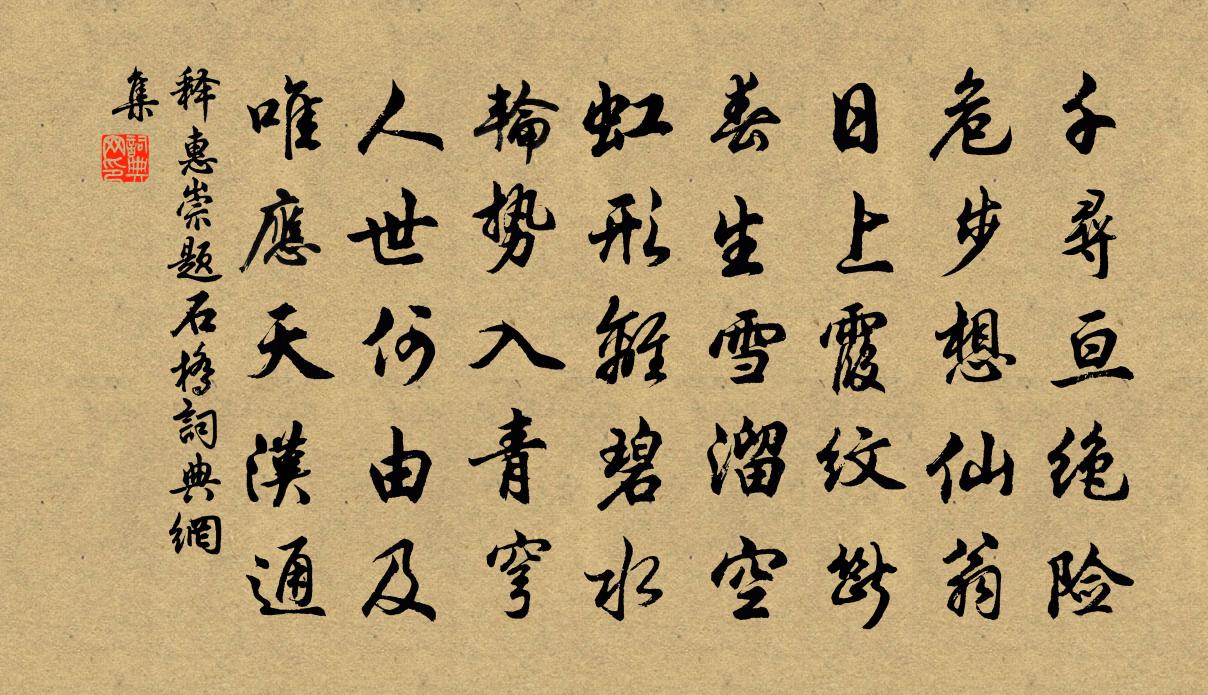 千尋亘绝险
危步想仙翁
日上霞纹断
春生雪溜空
虹形離碧水
輪势入青穹
人世何由及
唯應天漢通
释惠崇题石橋詞典網
集
詞典
网印